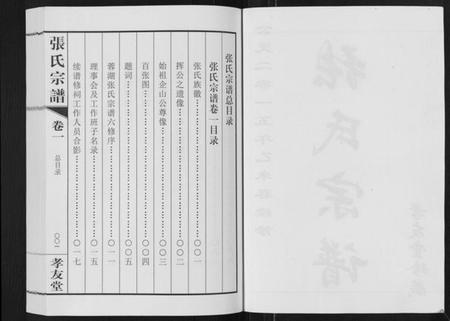 张氏宗谱总目录
张氏宗谱卷一目录
张氏族徽……○○一
挥公之遗像……○○二
始祖企山公尊像……○○三
百张图……○○四
题词……○○五
蓉湖张氏宗谱六修序……○一一
理事会及工作班子名录……○一五
续谱修祠工作人员合影……○一七
張氏宗譜
卷一
总目录
○○一
孝友堂